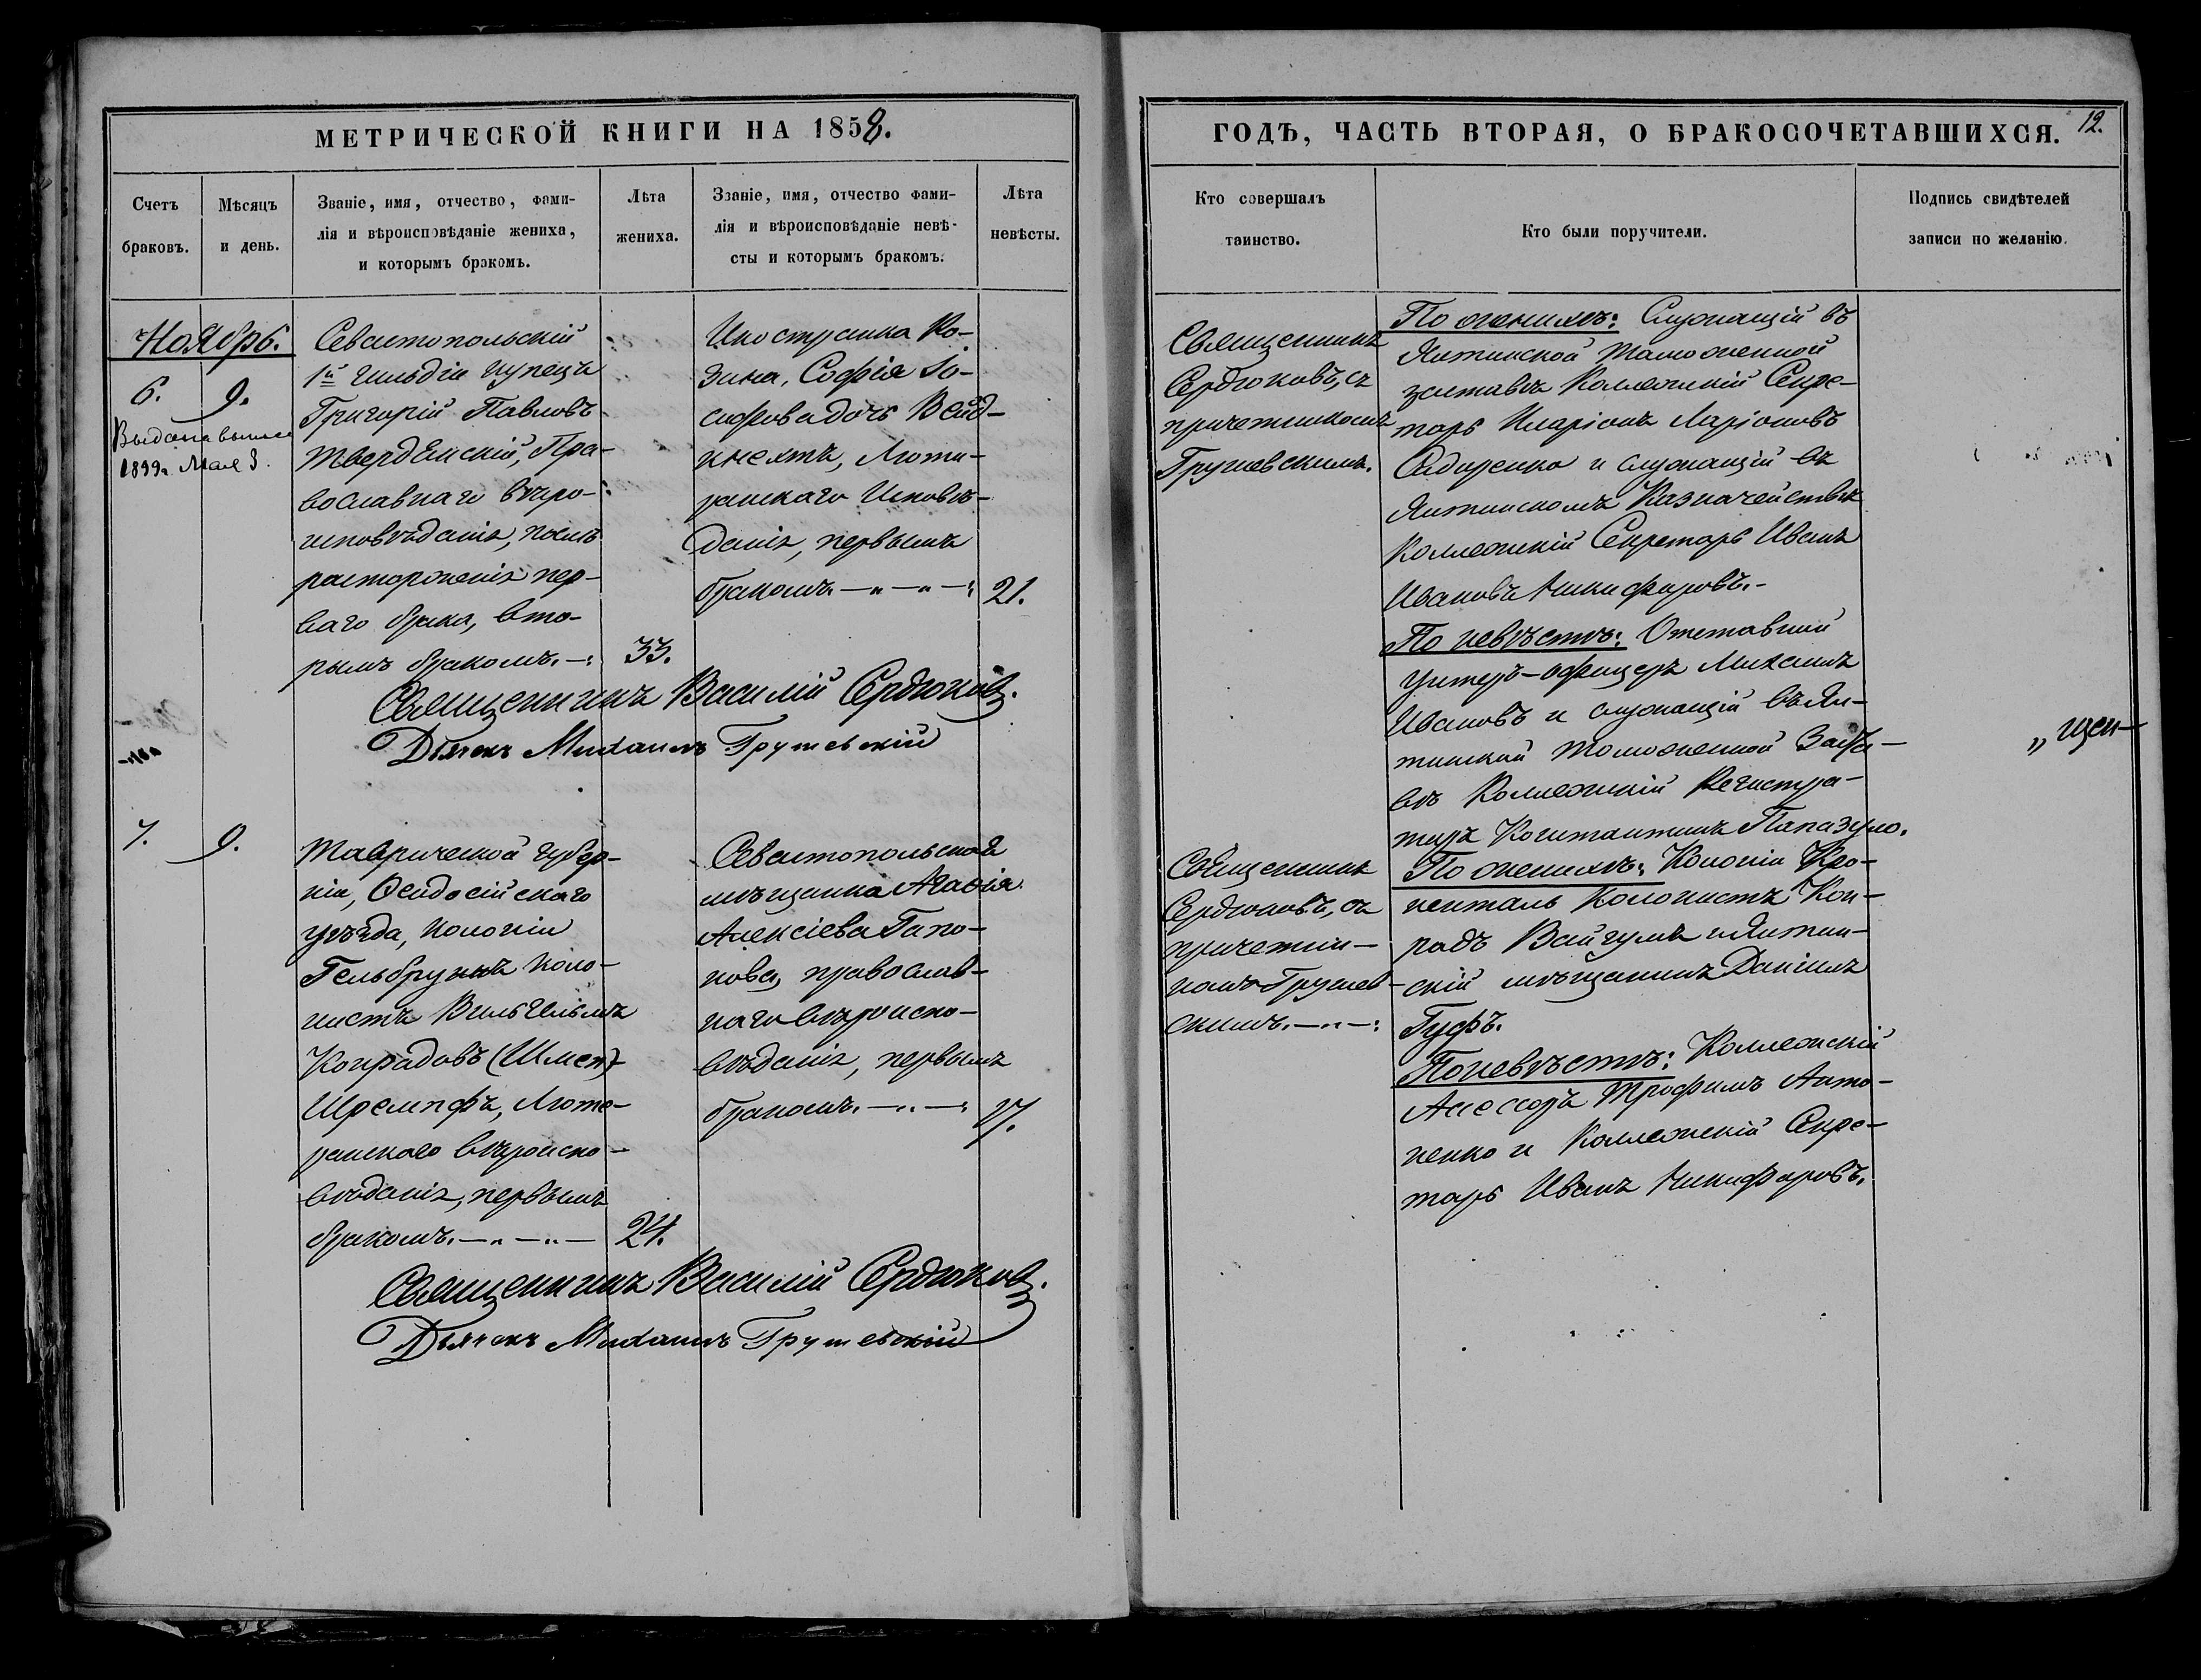 МЕТРИЧЕСКОЙ КНИГИ НА 1858.
Счетъ браковъ.
Мѣсяцъ и день.
Званіе, имя, отчество, фами-
лія и вѣроисповѣданіе жениха,
и которымъ бракомъ.
Лѣта
жениха.
Званіе, имя, отчество фами-
лія и вѣроисповѣданіе невѣ-
сты и которымъ бракомъ.
Лѣта
невѣсты.
Ноябрь.
6.
9.
Выдана выпись
1899 г. Мая 3.
Севастопольскій
1й гильдіи купецъ
Григорій Павловъ
Твердянскій, Пра-
вославнаго вѣро-
исповѣданія, послѣ
расторженія пер-
ваго брака, вто-
рымъ бракомъ.
33.
Иностранка
Софія Іо-
сифова дочь Вейд-
кнехтъ, Люте-
ранскаго Исповѣ-
данія, первымъ
бракомъ
21.
Священникъ Василій Сердюковъ.
Дьячекъ Михаилъ Грушевскій
7.
9.
Таврической губер-
ніи, Ѳеодосійскаго
уѣзда, колоніи
Гельбрунъ коло-
нистъ Вильгельмъ
Конрадовъ
Шремпфъ, Люте-
ранскаго вѣроиспо-
вѣданія, первымъ
бракомъ.
24.
Севастопольская
мѣщанка Агаѳія
Алексіева Гапо-
нова, православ-
наго вѣроиспо-
вѣданія, первымъ
бракомъ.
17.
Священникъ Василій Сердюковъ.
Дьячекъ Михаилъ Грушевскій
ГОДЪ, ЧАСТЬ ВТОРАЯ, О БРАКОСОЧЕТАВШИХСЯ.
12.
Кто совершалъ
таинство.
Кто были поручители.
Подпись свидѣтелей
записи по желанію.
Священникъ
Сердюковъ, съ
причетникомъ
Грушевскимъ.
По женихѣ: Служащій въ
Ялтинской таможенной
заставѣ Коллежскій Секре-
тарь Иларіонъ Ларіоновъ
Сидоренко и служащій въ
Ялтинскомъ Казначействѣ
Коллежскій Секретарь Иванъ
Ивановъ Никифоровъ.
По невѣстѣ: Отставный
унтеръ-офицеръ Михаилъ
Ивановъ и служащій въ Ял-
тинской таможенной Заста-
вѣ Коллежскій Регистра-
торъ Константинъ Папазуло.
„ щен—
Священникъ
Сердюковъ, съ
причетни-
комъ Грушев-
скимъ.
По женихѣ: Колоніи Кро-
ненталь Колонистъ Кон-
радъ Вайгумъ и Ялтин-
скій мѣщанинъ Даніилъ
Гуфъ.
По невѣстѣ: Коллежскій
Асессоръ Трофимъ Анто-
ненко и Коллежскій Секре-
тарь Иванъ Никифоровъ.